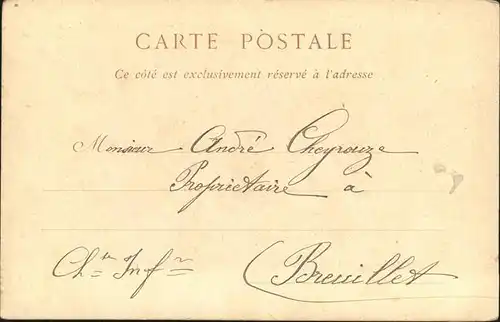 CARTE POSTALE
Ce côté est exclusivement réservé à l'adresse
Monsieur André Cheyrouze
Propriétaire à
Ch^te Inf^re (Breuillet